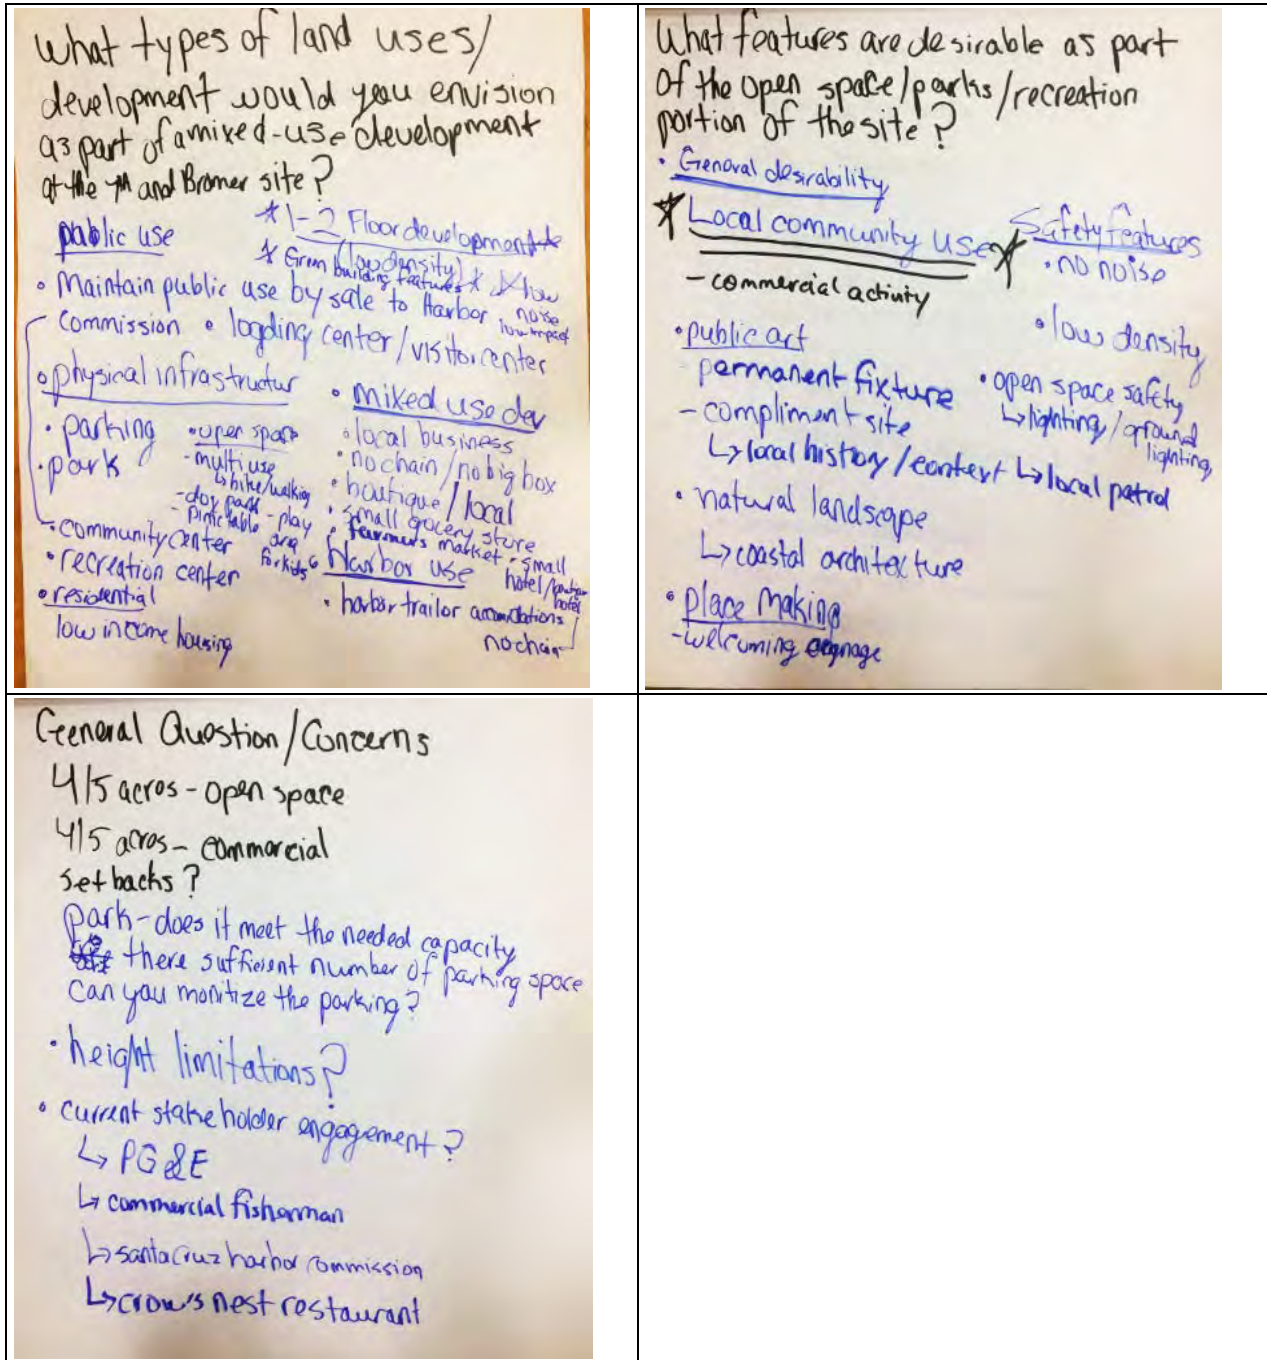 What types of land uses/
development would you envision
as part of a mixed-use development
at the 7th and Brommer site?
public use
* 1-2 Floor development *
(low density) *
* Green building features * low
noise
low impact
• Maintain public use by sale to Harbor
commission • loading center/visitor center
• physical infrastructur
• parking
• park
• open space
- multi use
↳ bike/walking
- dog park - play
area
for kids
- picnic table
• community center
• recreation center
• residential
low income housing
• mixed use dev
• local business
• no chain/no big box
• boutique/local
• small grocery store
• farmers market • small
hotel/boutique
hotel
no chain
• Harbor use
• harbor trailor accomidations
What features are desirable as part
of the open space/parks/recreation
portion of the site?
• General desirability
* Local community use *
- commercial activity
• public art
- permanent fixture
- compliment site
↳ local history/context
• natural landscape
↳ coastal architexture
• place making
- welcoming signage
Safety features
• no noise
• low density
• open space safety
↳ lighting/ground
lighting
↳ local patrol
General Question/Concerns
4/5 acres - open space
4/5 acres - commercial
setbacks?
park - does it meet the needed capacity
there sufficient number of parking space
can you monitize the parking?
• height limitations?
• current stakeholder engagement?
↳ PG&E
↳ commercial fisherman
↳ santa cruz harbor commission
↳ crow's nest restaurant